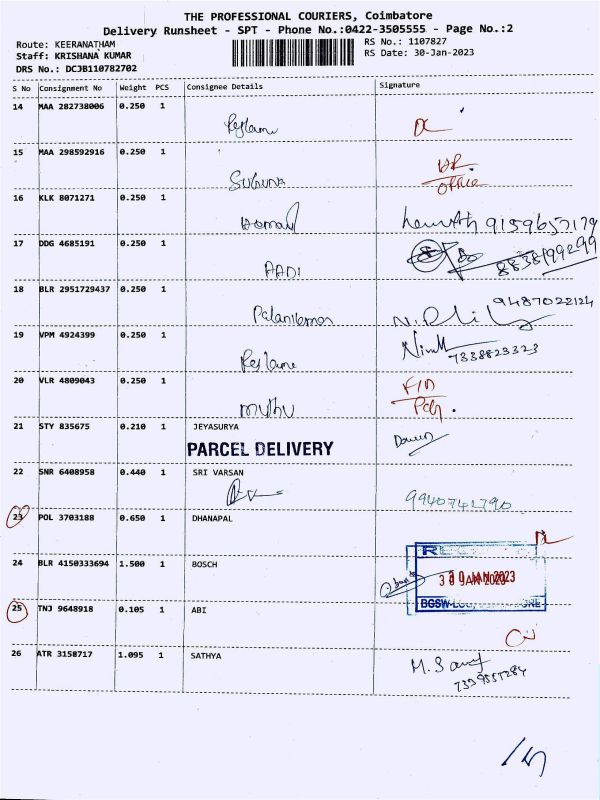 THE PROFESSIONAL COURIERS, Coimbatore
Delivery Runsheet - SPT - Phone No.:0422-3505555 - Page No.:2
Route: KEERANATHAM
RS No.: 1107827
Staff: KRISHANA KUMAR
RS Date: 30-Jan-2023
DRS No.: DCJB110782702
S No Consignment No Weight PCS Consignee Details Signature
14 MAA 282738006 0.250 1
15 MAA 298592916 0.250 1 Suguna HR
Office
16 KLK 8071271 0.250 1 9159657179
17 DDG 4685191 0.250 1 AADI 8838199299
18 BLR 2951729437 0.250 1 9487022124
19 VPM 4924399 0.250 1 7338823323
20 VLR 4809043 0.250 1 muthu
21 STY 835675 0.210 1 JEYASURYA
PARCEL DELIVERY
22 SNR 6408958 0.440 1 SRI VARSAN
9940741790
23 POL 3703188 0.650 1 DHANAPAL
24 BLR 4150333694 1.500 1 BOSCH
30 JAN 2023
25 TNJ 9648918 0.105 1 ABI
26 ATR 3158717 1.095 1 SATHYA